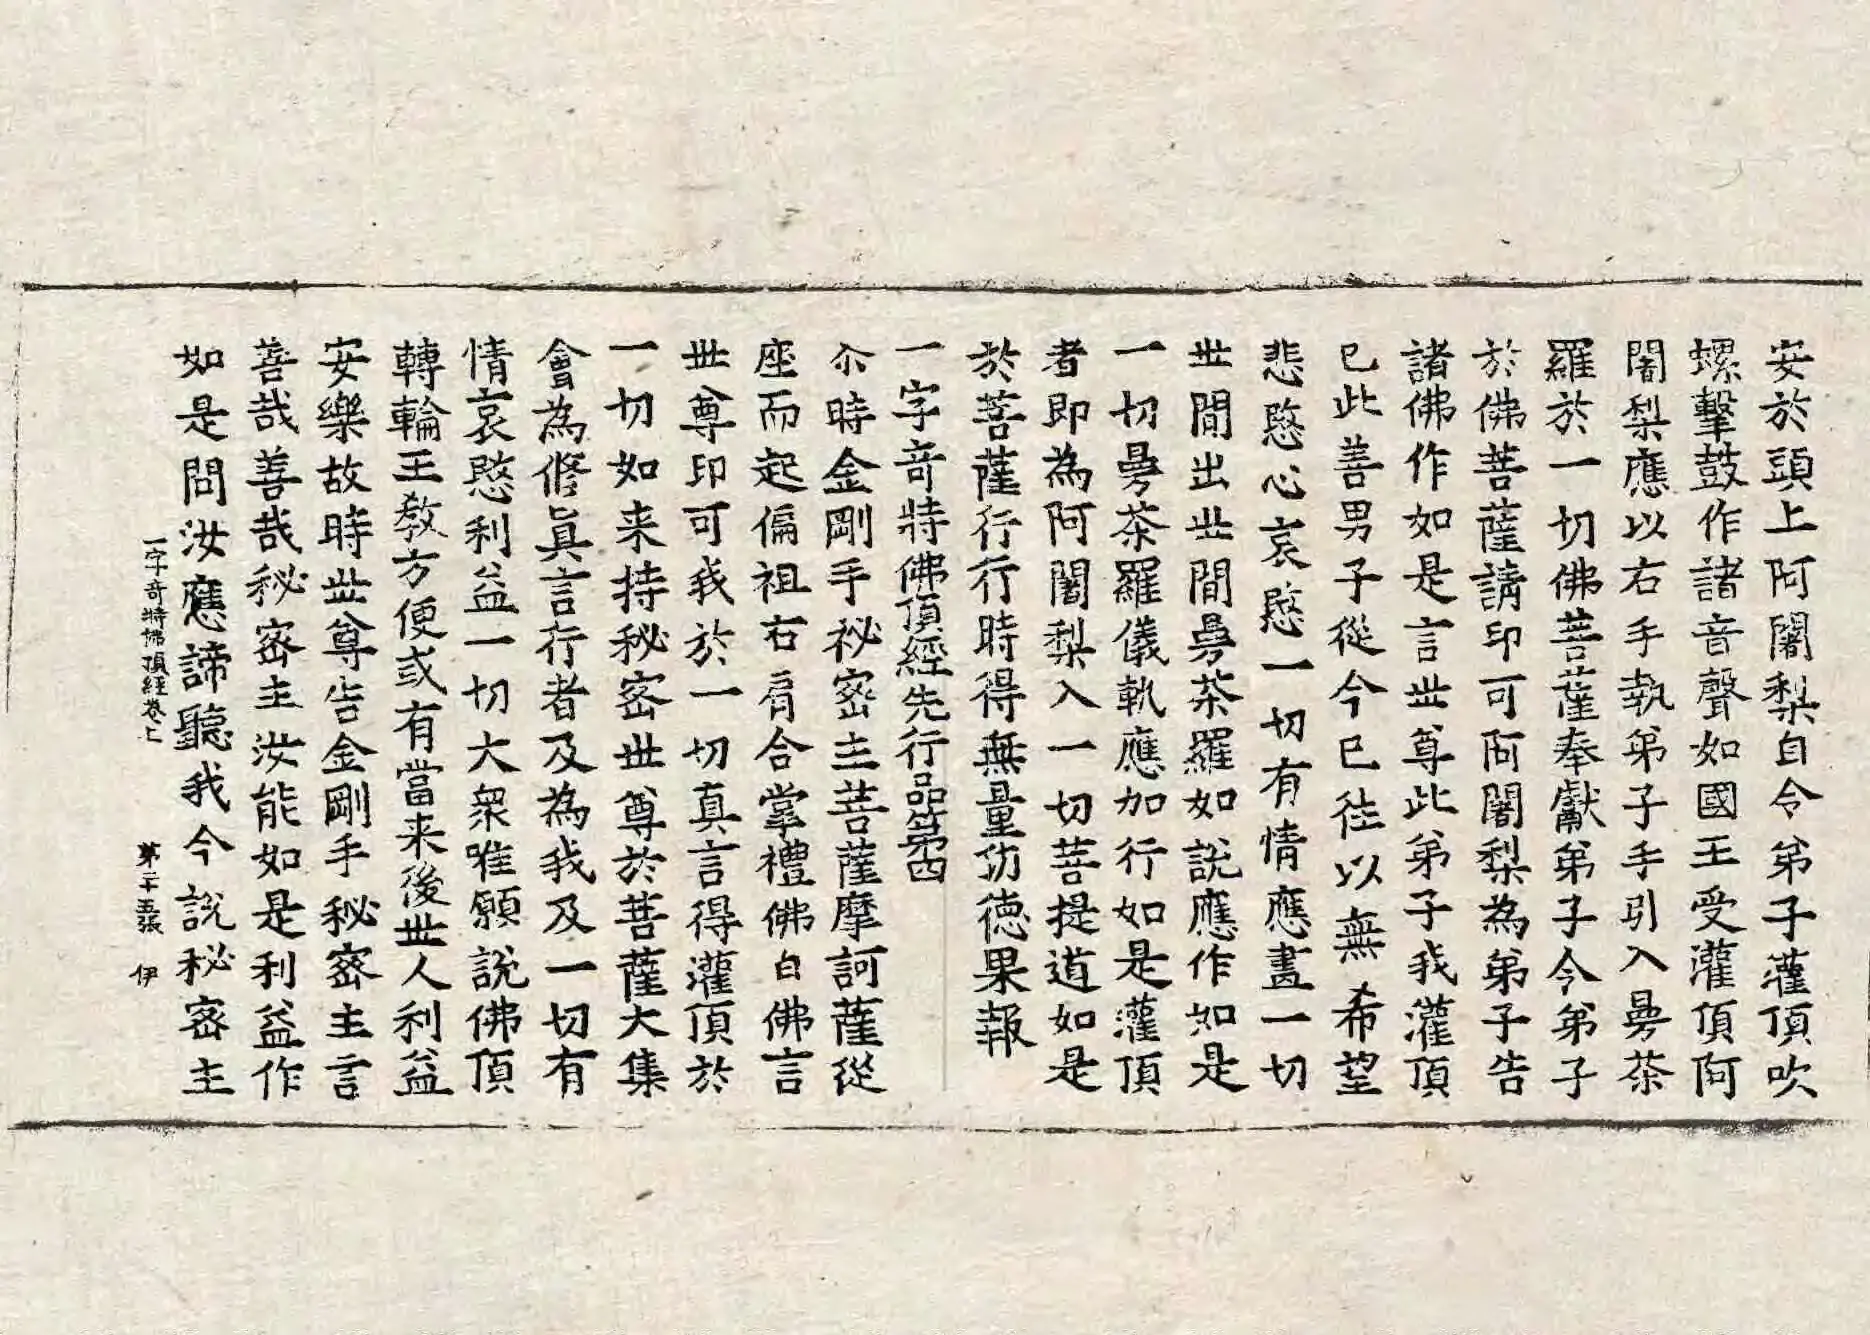 安於頭上阿闍梨自令弟子灌頂吹
螺擊鼓作諸音聲如國王受灌頂阿
闍梨應以右手執弟子手引入曼荼
羅於一切佛菩薩奉獻弟子令弟子
於佛菩薩請印可阿闍梨為弟子告
諸佛作如是言世尊此弟子我灌頂
已此善男子從今已往以無希望
悲愍心哀愍一切有情應畫一切
世間出世間曼荼羅如說應作如是
一切曼荼羅儀軌應加行如是灌頂
者即為阿闍梨入一切菩提道如是
於菩薩行行時得無量功德果報
一字奇特佛頂經先行品第四
尒時金剛手祕密主菩薩摩訶薩從
座而起偏袒右肩合掌禮佛白佛言
世尊印可我於一切真言得灌頂於
一切如来持秘密世尊於菩薩大集
會為修眞言行者及為我及一切有
情哀愍利益一切大衆唯願說佛頂
轉輪王教方便或有當来後世人利益
安樂故時世尊告金剛手秘密主言
善哉善哉秘密主汝能如是利益作
如是問汝應諦聽我今說秘密主
一字奇特佛頂經卷上 第二十五張 伊